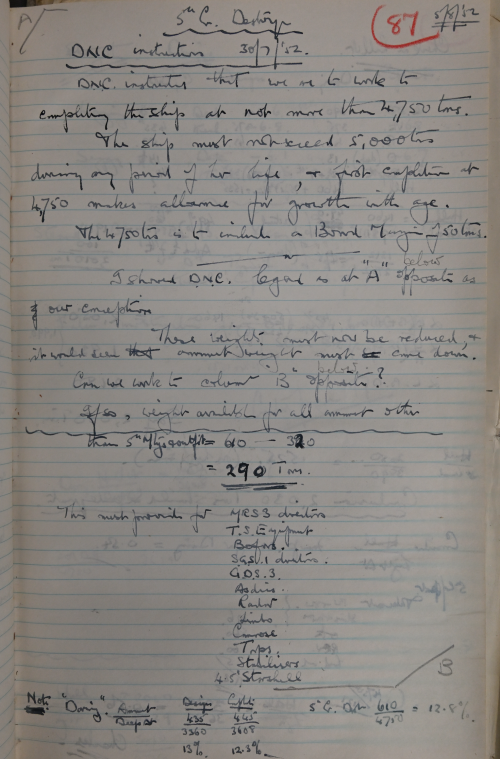 A
5" G. Destroyer
87
5/8/'52
DNC instructions 30/7/'52.
DNC. instructs that we are to work to
completing the ship at not more than 4,750 tons.
The ship must not exceed 5,000 tons
during any period of her life, & first completion at
4,750 makes allowance for growth with age.
The 4750 tons is to include a Board Margin of 50 tons.
I showed D.N.C. legend as at "A" opposite as
below
of our conception
These weights must now be reduced, &
it would seem armament weight must come down.
Can we work to column "B" opposite?
below
If so, weight available for all armament other
than 5" Mtgs & outfit = 610 — 320
= 290 Tons.
This must provide for MRS3 directors
T.S. Equipment
Bofors.
SGS.1 director.
G.D.S.3.
Asdics.
Radar
Limbo
Torps.
Stabilisers
4.5" Starshell
B
Note "Daring". Armament Design Compln
Deep disp 435 445
3360 3608
13% 12.3%.
5" G. Dstr 610 = 12.8%.
4750